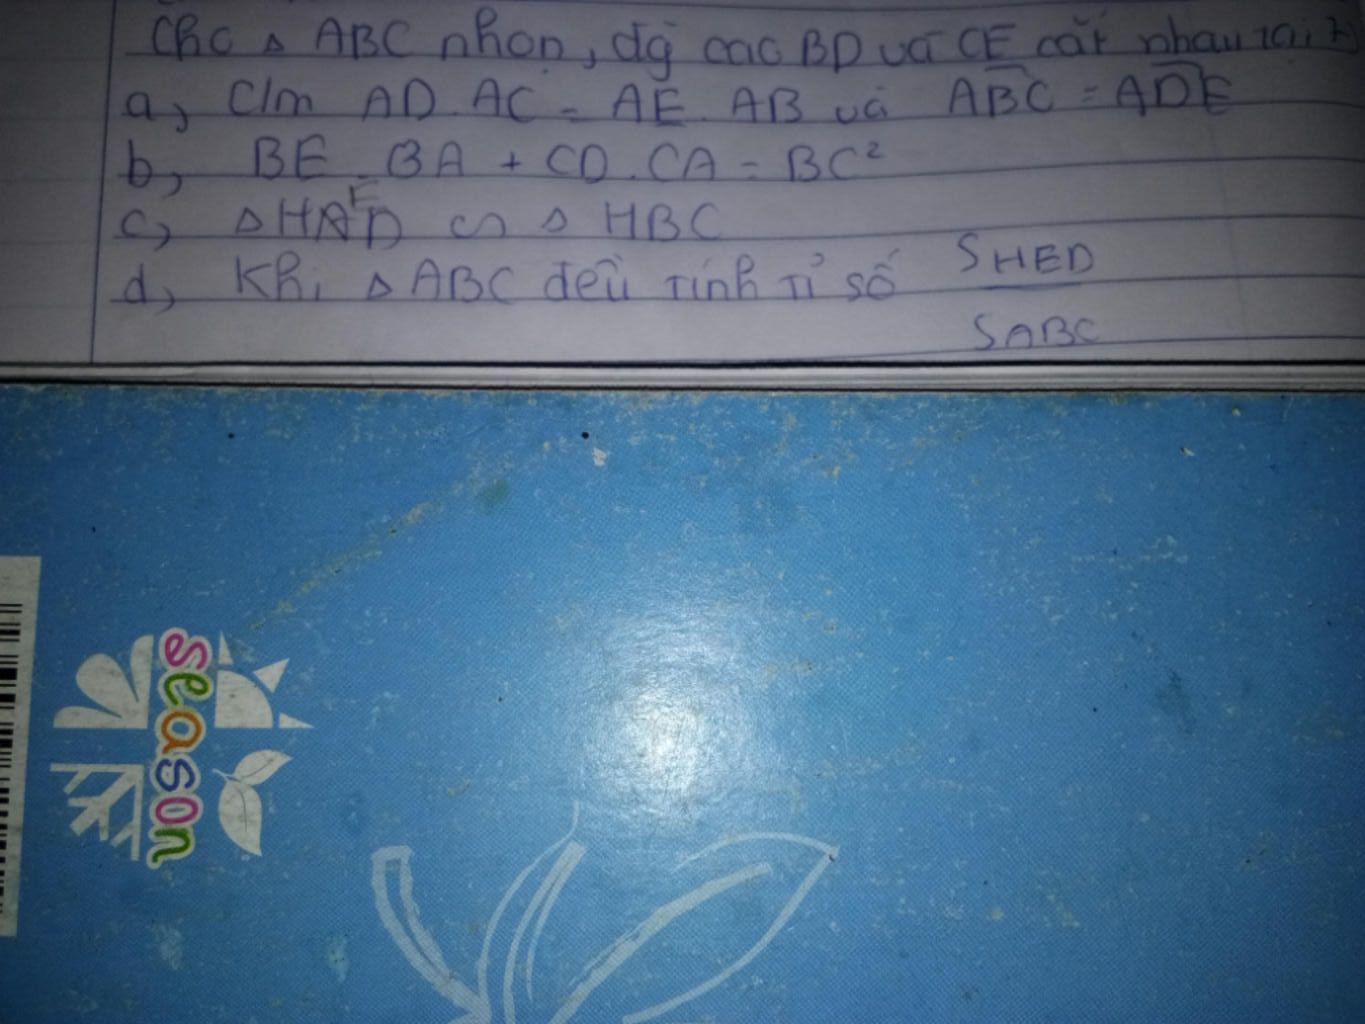 Cho △ ABC nhọn, đg cao BD và CE cắt nhau tại H
a, C/m AD.AC = AE.AB và ABC = ADE
b, BE.BA + CD.CA = BC²
c, △HED ∽ △ HBC
d, Khi △ABC đều tính tỉ số SHED / SABC
season